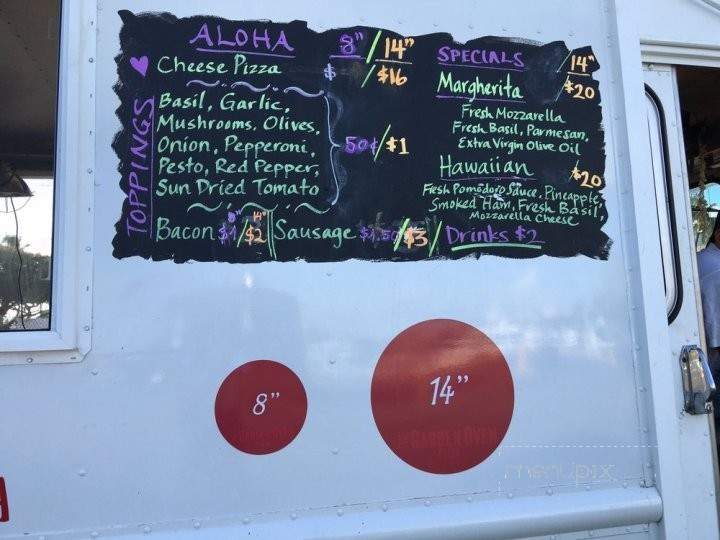 ALOHA 8"/14"
Cheese Pizza $ /$16
TOPPINGS
Basil, Garlic,
Mushrooms, Olives,
Onion, Pepperoni,
Pesto, Red Pepper,
Sun Dried Tomato
50¢/$1
8" 14"
Bacon $1/$2 Sausage $1.50/$3/ Drinks $2
SPECIALS /14"
Margherita $20
Fresh Mozzarella
Fresh Basil, Parmesan,
Extra Virgin Olive Oil
Hawaiian $20
Fresh Pomodoro Sauce, Pineapple,
Smoked Ham, Fresh Basil,
Mozzarella Cheese
8"
14"
menupix